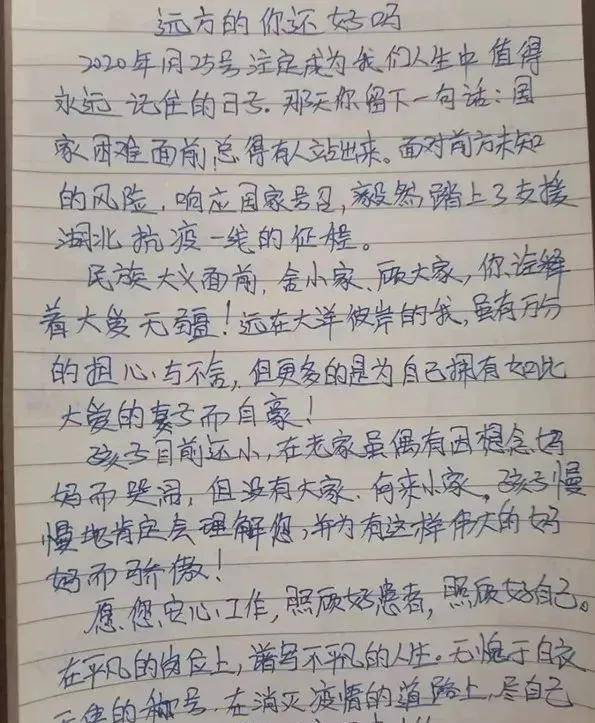 远方的你还好吗
2020年1月25号注定成为我们人生中值得
永远记住的日号.那天你留下一句话:国
家困难面前,总得有人站出来。面对前方未知
的风险,响应国家号召,毅然踏上了支援
湖北抗疫一线的征程。
民族大义面前,舍小家、顾大家,你诠释
着大爱无疆!远在大洋彼岸的我,虽有万分
的担心与不舍,但更多的是为自己拥有如此
大爱的妻子而自豪!
孩子目前还小,在老家虽偶有因想念妈
妈而哭闹,但没有大家.何来小家。孩子慢
慢地肯定会理解您,并为有这样伟大的妈
妈而骄傲!
愿您安心工作,照顾好患者,照顾好自己。
在平凡的岗位上,谱写不平凡的人生.无愧于白衣
天使的称号.在消灭疫情的道路上,尽自己